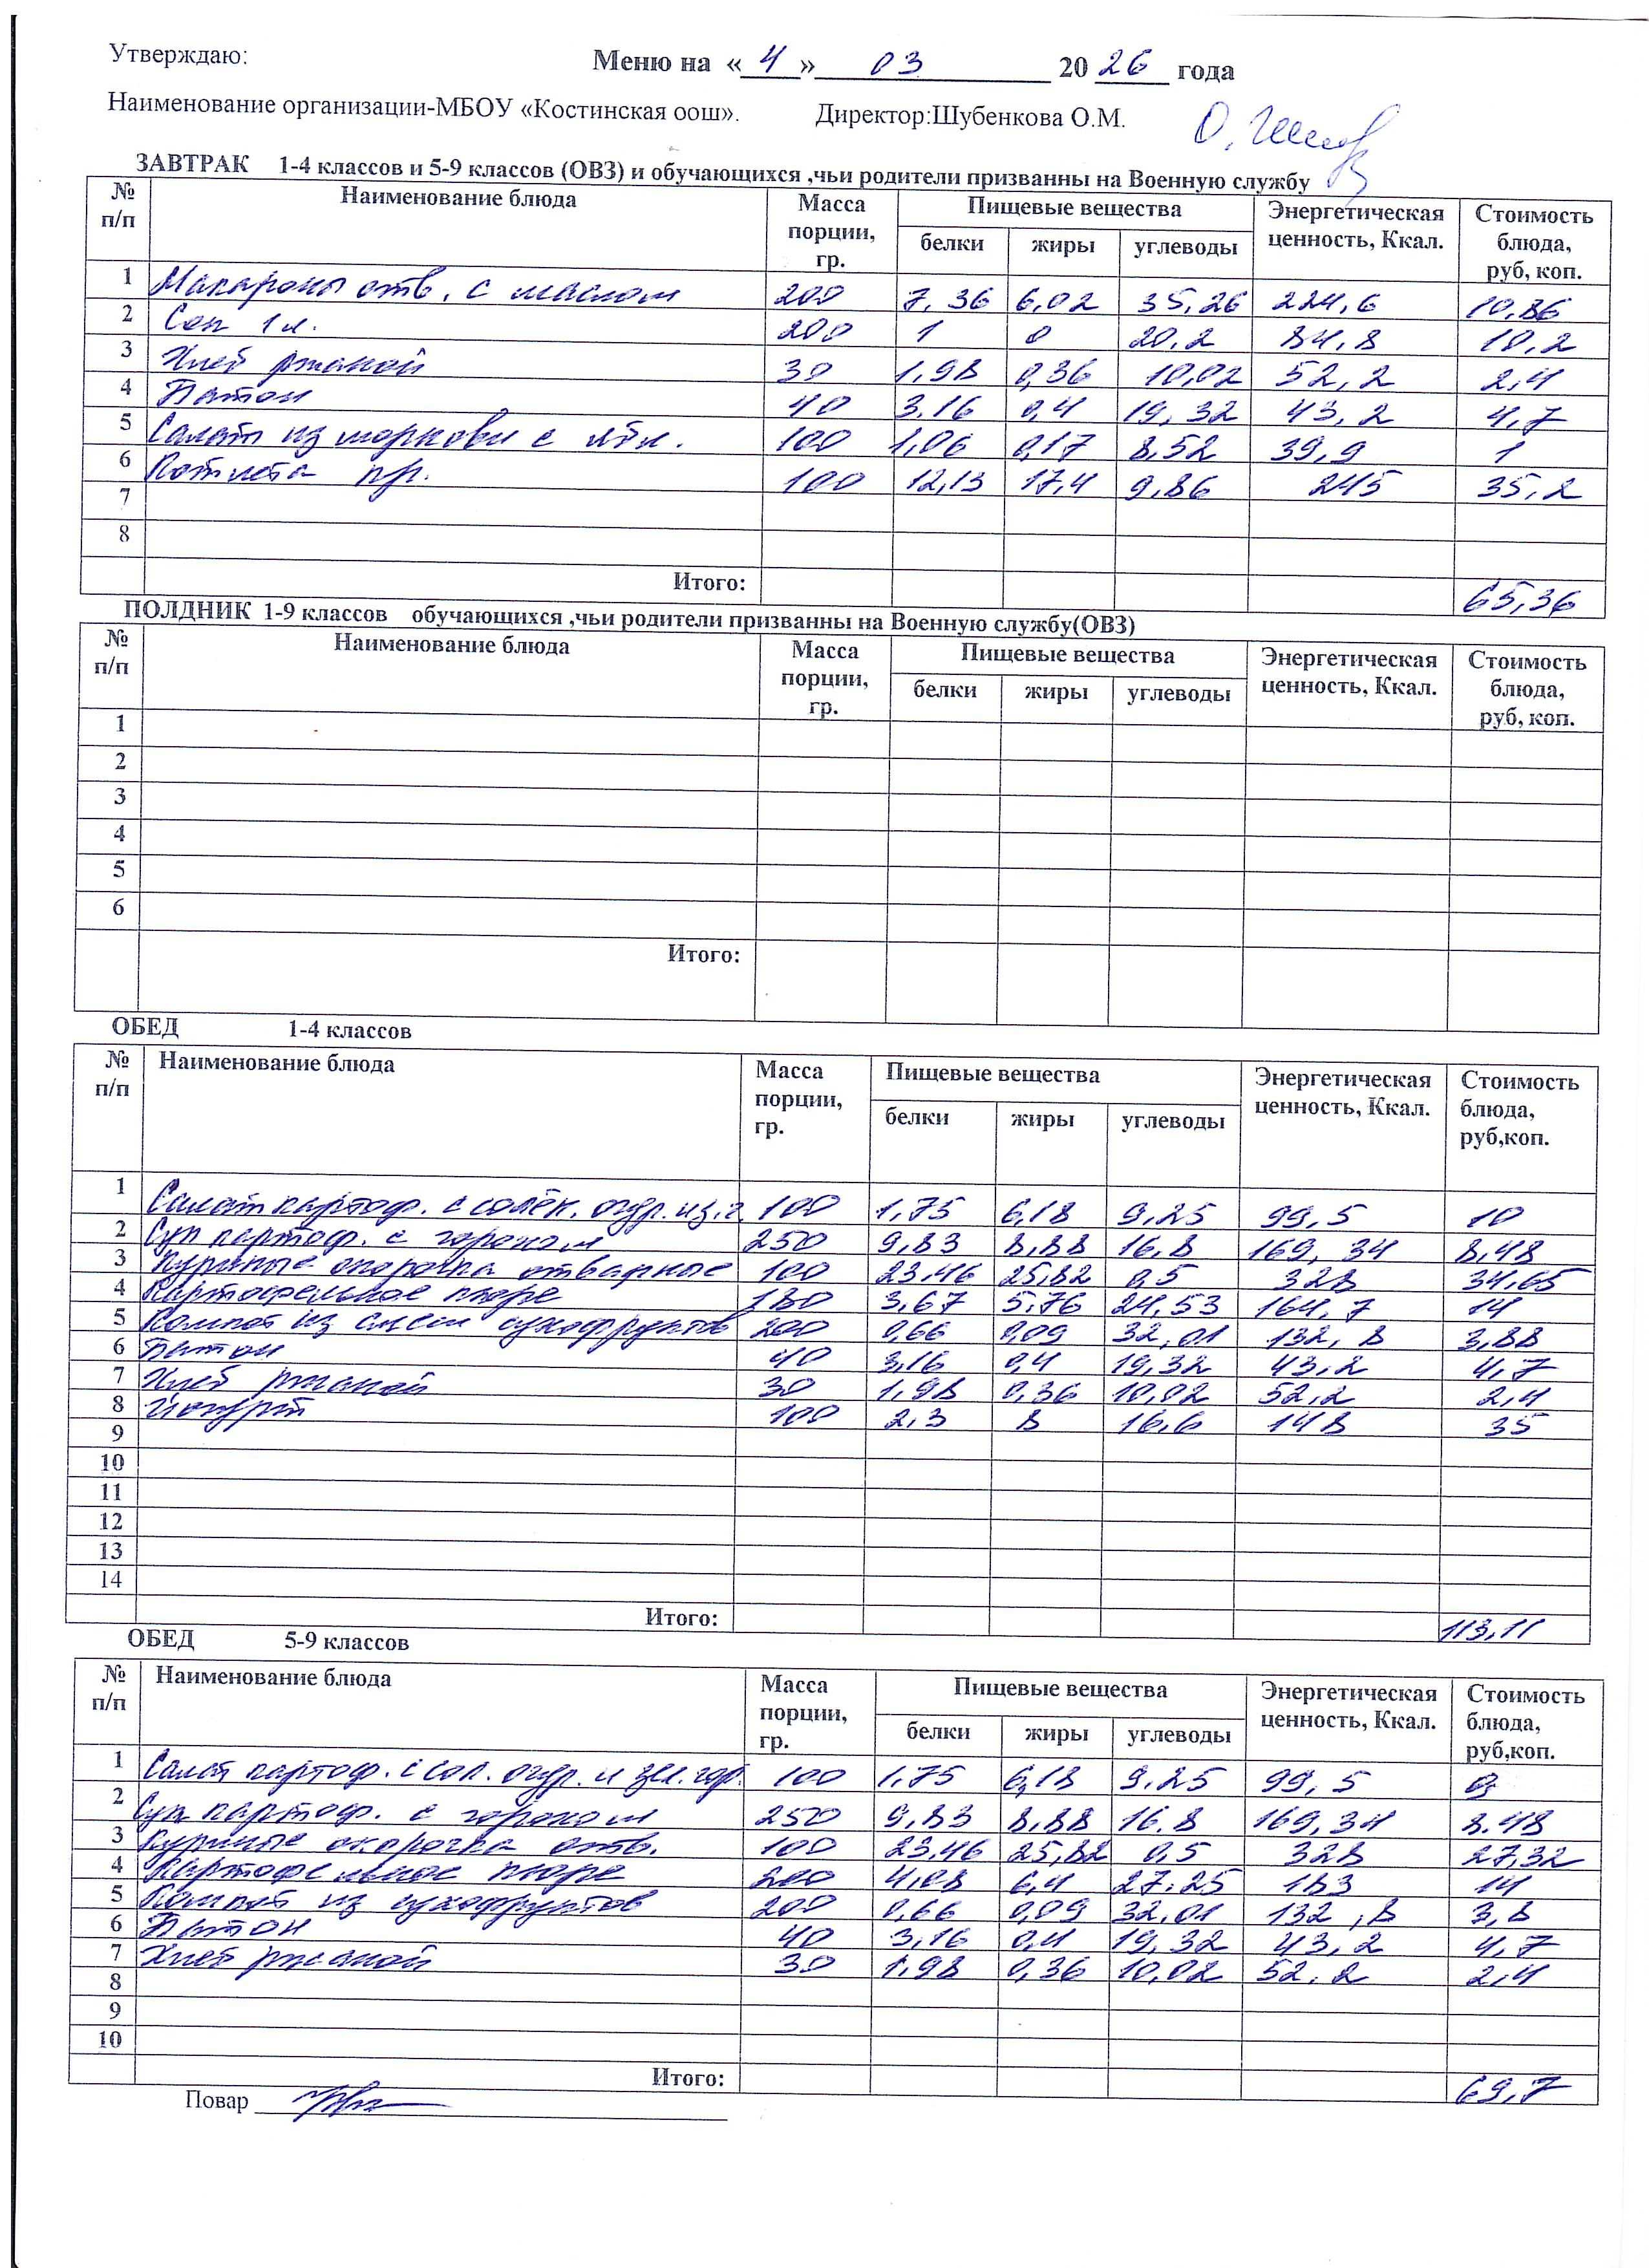 Утверждаю:
Меню на «4» 03 2026 года
Наименование организации-МБОУ «Костинская оош». Директор:Шубенкова О.М.
ЗАВТРАК 1-4 классов и 5-9 классов (ОВЗ) и обучающихся ,чьи родители призванны на Военную службу
№ п/п Наименование блюда Масса порции, гр. Пищевые вещества Энергетическая ценность, Ккал. Стоимость блюда, руб, коп.
белки жиры углеводы
1 Макароны отв. с маслом 200 7,36 6,02 35,26 224,6 10,86
2 Сок 1л. 200 1 0 20,2 84,8 10,2
3 Хлеб ржаной 30 1,98 0,36 10,02 52,2 2,4
4 Батон 40 3,16 0,4 19,32 43,2 4,7
5 Салат из моркови с ябл. 100 1,06 0,17 8,52 39,9 1
6 Котлета кр. 100 12,13 17,4 9,86 245 35,2
7
8
Итого: 65,36
ПОЛДНИК 1-9 классов обучающихся ,чьи родители призванны на Военную службу(ОВЗ)
№ п/п Наименование блюда Масса порции, гр. Пищевые вещества Энергетическая ценность, Ккал. Стоимость блюда, руб, коп.
белки жиры углеводы
1
2
3
4
5
6
Итого:
ОБЕД 1-4 классов
№ п/п Наименование блюда Масса порции, гр. Пищевые вещества Энергетическая ценность, Ккал. Стоимость блюда, руб,коп.
белки жиры углеводы
1 Салат картоф. с солён. огур. из.г. 100 1,75 6,18 9,25 99,5 10
2 Суп картоф. с горохом 250 9,83 8,88 16,8 169,34 8,48
3 Куриные окорочка отварные 100 23,46 25,82 0,5 328 34,65
4 Картофельное пюре 180 3,67 5,76 24,53 164,7 14
5 Компот из смеси сухофруктов 200 0,66 0,09 32,01 132,8 3,88
6 Батон 40 3,16 0,4 19,32 43,2 4,7
7 Хлеб ржаной 30 1,98 0,36 10,02 52,2 2,4
8 Йогурт 100 2,3 8 16,6 148 35
9
10
11
12
13
14
Итого: 113,11
ОБЕД 5-9 классов
№ п/п Наименование блюда Масса порции, гр. Пищевые вещества Энергетическая ценность, Ккал. Стоимость блюда, руб,коп.
белки жиры углеводы
1 Салат картоф. с сол. огур. и зел. гор. 100 1,75 6,18 9,25 99,5
2 Суп картоф. с горохом 250 9,83 8,88 16,8 169,34 8.48
3 Куриные окорочка отв. 100 23,46 25,82 0,5 328 27,32
4 Картофельное пюре 200 4,08 6,4 27,25 183 14
5 Компот из сухофруктов 200 0,66 0,09 32,01 132,8 3,8
6 Батон 40 3,16 0,4 19,32 43,2 4,7
7 Хлеб ржаной 30 1,98 0,36 10,02 52,2 2,4
8
9
10
Итого: 69,7
Повар